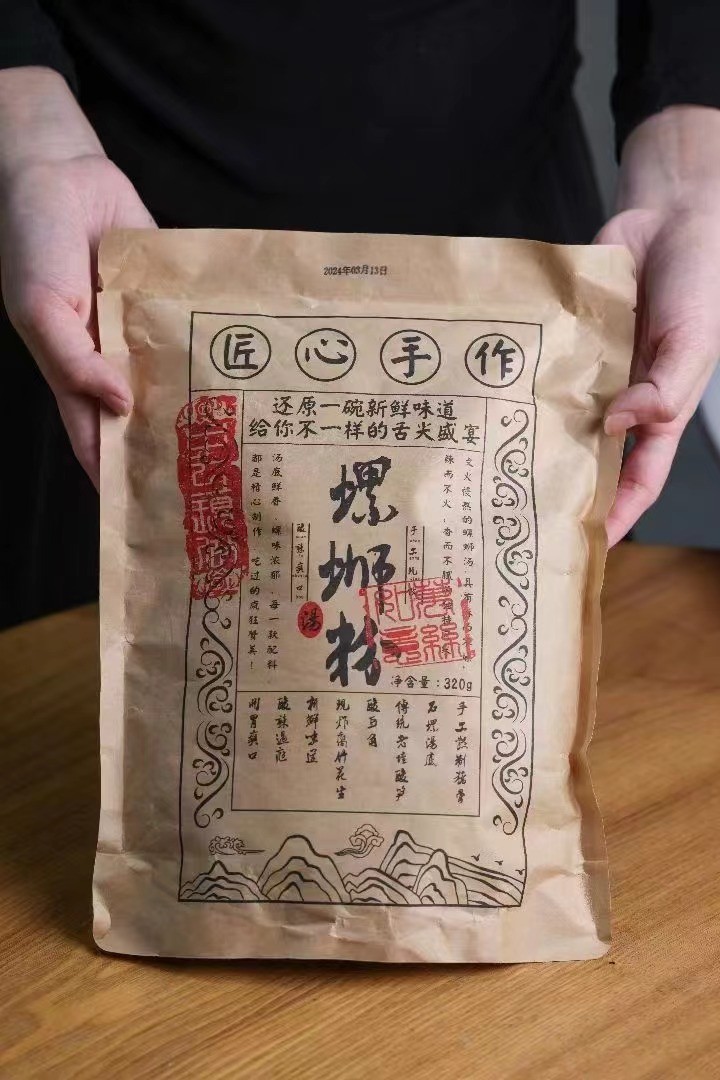 2024年03月13日
匠心手作
还原一碗新鲜味道
给你不一样的舌尖盛宴
文火慢熬的螺蛳汤
辣而不火，香而不腻
螺蛳粉
汤
手工现
酸辣爽口
汤底鲜香，螺味浓郁，每一款配料
都是精心制作，吃过的疯狂赞美！
净含量：320g
手工熬制猪骨
石螺汤底
傳統老坛酸笋
酸豆角
现炸腐竹花生
新鲜味道
酸辣过瘾
开胃爽口